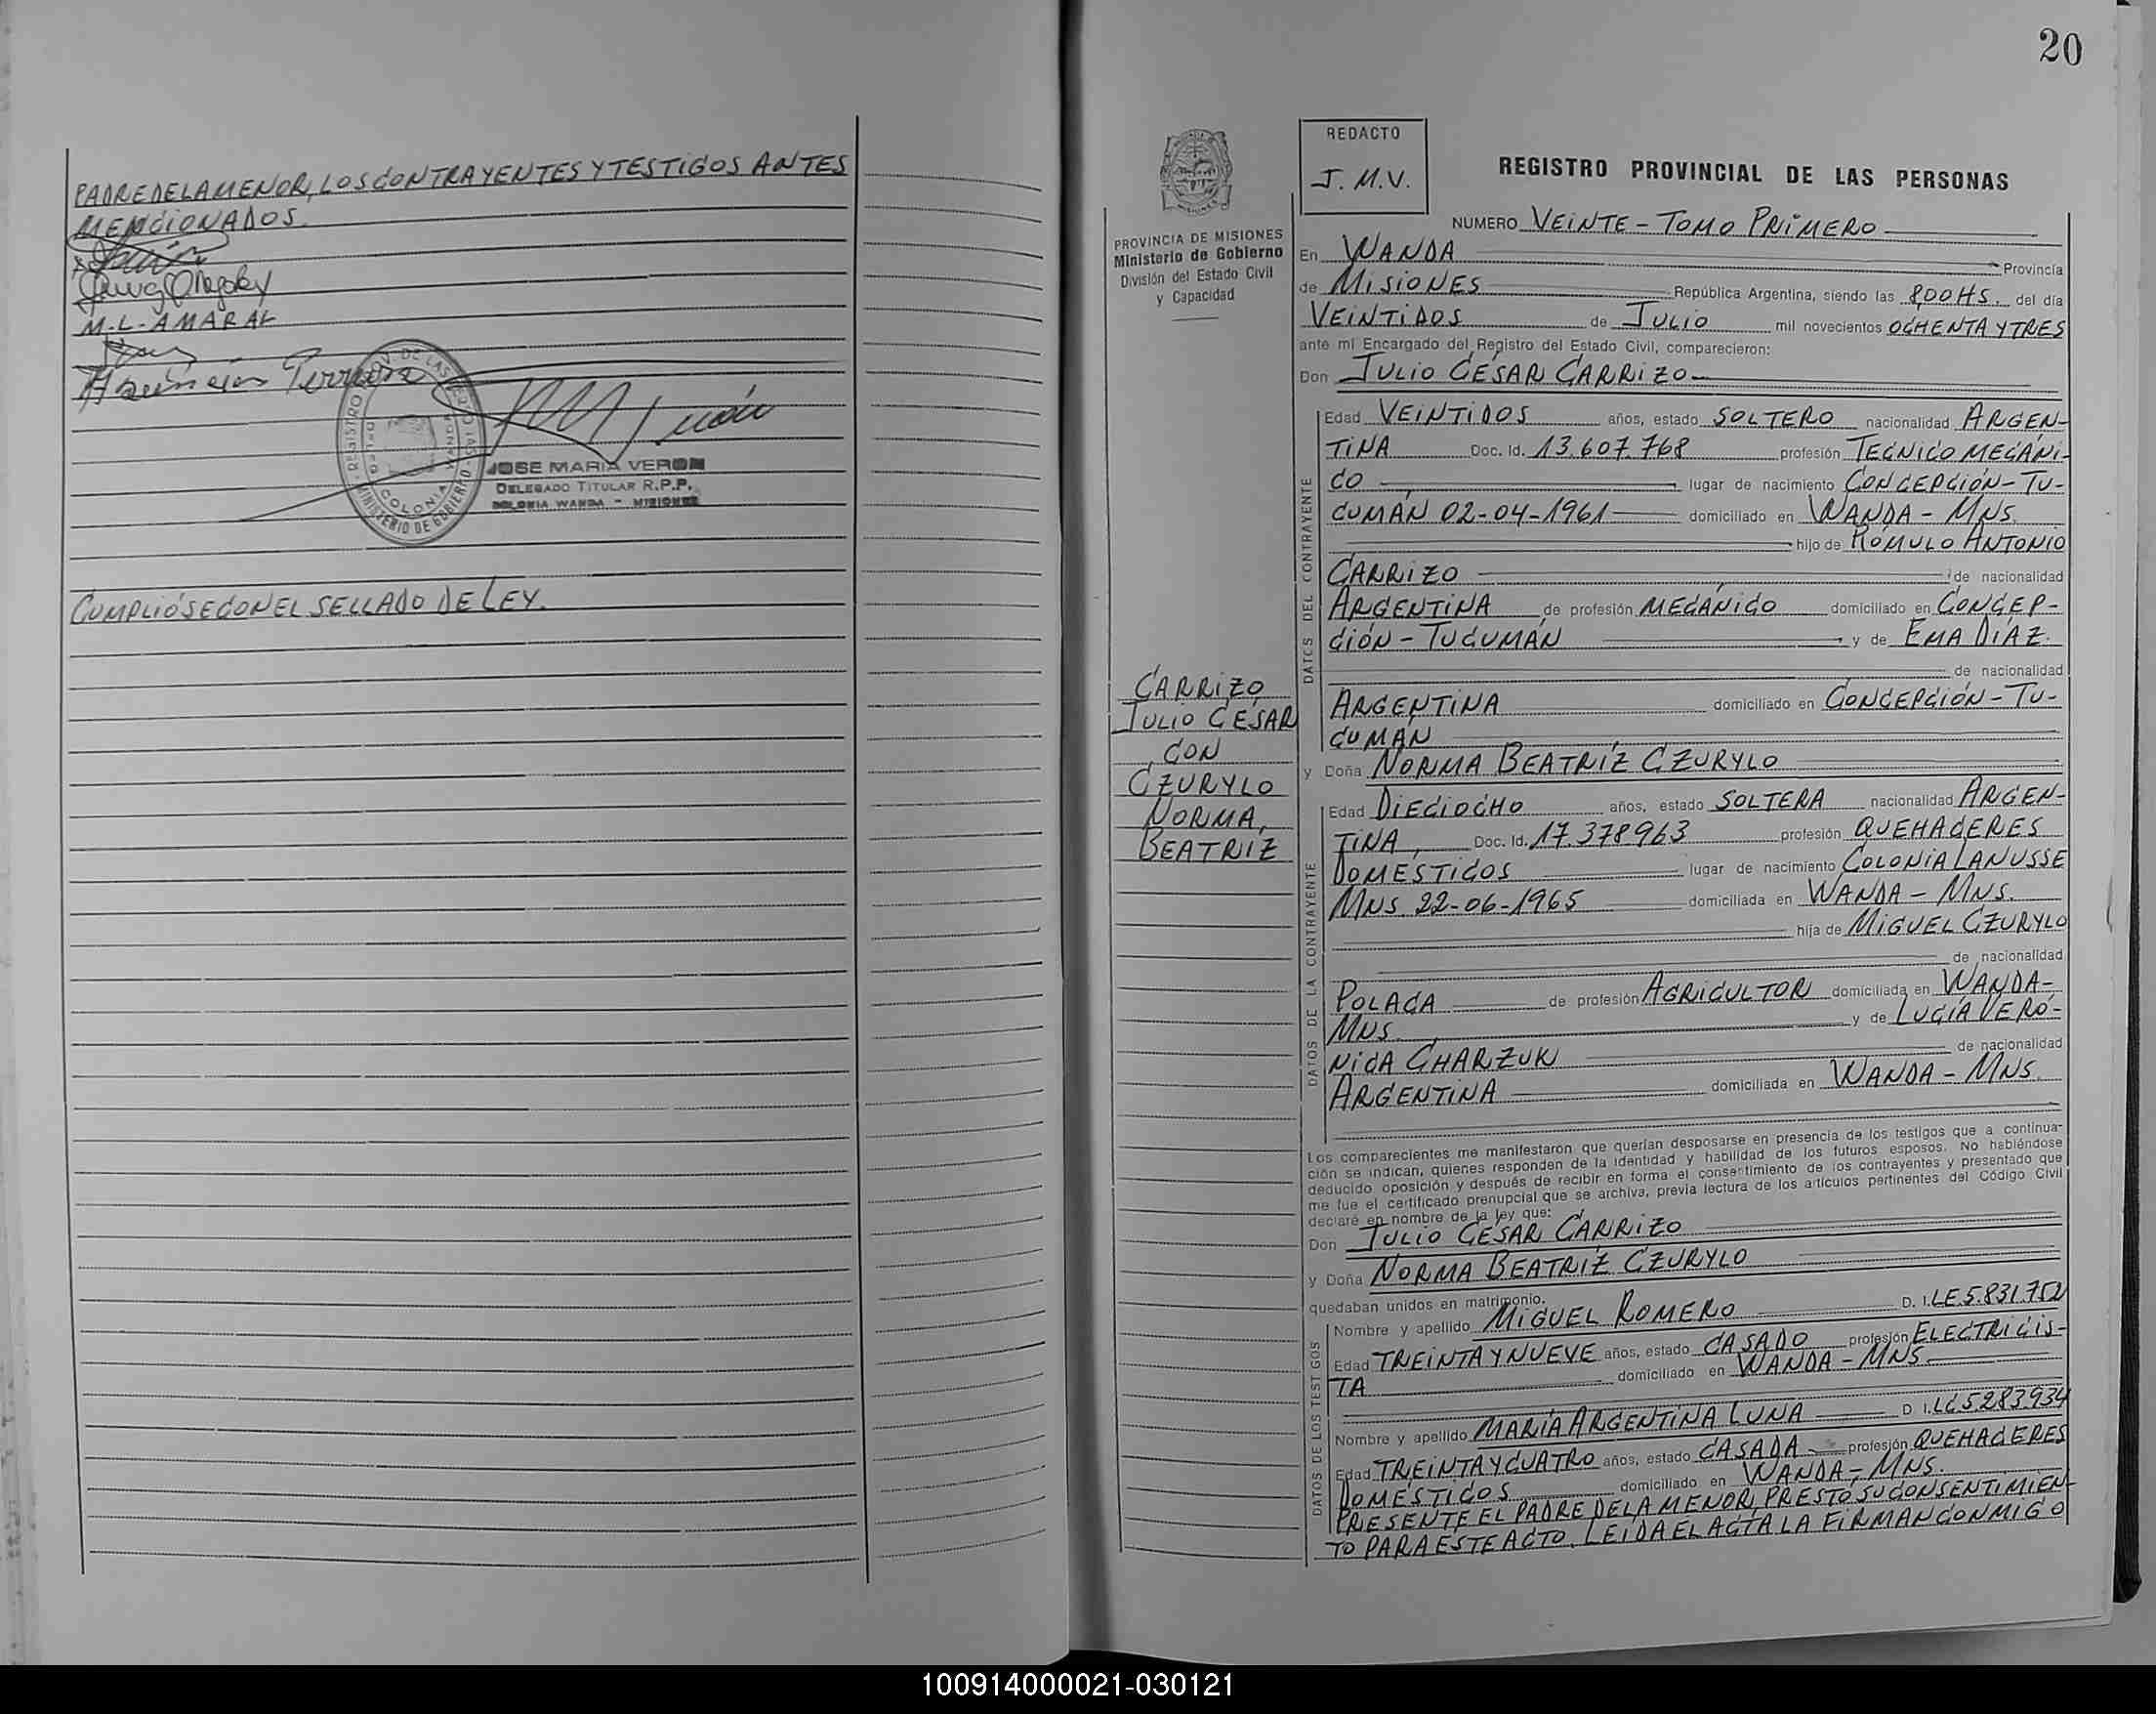 PADRE DE LA MENOR, LOS CONTRAYENTES Y TESTIGOS ANTES
MENCIONADOS.
M.L. AMARAL
JOSE MARIA VERON
DELEGADO TITULAR R.P.P.
COLONIA WANDA - MISIONES
CUMPLIÓSE CON EL SELLADO DE LEY.
20
REDACTO
J.M.V.
REGISTRO PROVINCIAL DE LAS PERSONAS
PROVINCIA DE MISIONES
Ministerio de Gobierno
División del Estado Civil
y Capacidad
CARRIZO
JULIO CÉSAR
CON
CZURYLO
NORMA
BEATRIZ
NUMERO VEINTE - TOMO PRIMERO
En WANDA Provincia
de MISIONES República Argentina, siendo las 8,00 HS. del día
VEINTIDOS de JULIO mil novecientos OCHENTA Y TRES
ante mí Encargado del Registro del Estado Civil, comparecieron:
Don JULIO CÉSAR CARRIZO
DATOS DEL CONTRAYENTE
Edad VEINTIDOS años, estado SOLTERO nacionalidad ARGEN-
TINA Doc. Id. 13.607.768 profesión TECNICO MECÁNI-
CO lugar de nacimiento CONCEPCIÓN - TU-
CUMÁN 02-04-1961 domiciliado en WANDA - MNS.
hijo de RÓMULO ANTONIO
CARRIZO de nacionalidad
ARGENTINA de profesión MECÁNICO domiciliado en CONCEP-
CIÓN - TUCUMÁN y de EMA DÍAZ.
de nacionalidad
ARGENTINA domiciliado en CONCEPCIÓN - TU-
CUMÁN
y Doña NORMA BEATRÍZ CZURYLO
DATOS DE LA CONTRAYENTE
Edad DIECIOCHO años, estado SOLTERA nacionalidad ARGEN-
TINA, Doc. Id. 17.378.963 profesión QUEHACERES
DOMÉSTICOS lugar de nacimiento COLONIA LANUSSE
MNS. 22-06-1965 domiciliada en WANDA - MNS.
hija de MIGUEL CZURYLO
de nacionalidad
POLACA de profesión AGRICULTOR domiciliada en WANDA-
MNS. y de LUCÍA VERÓ-
NICA CHARZUK de nacionalidad
ARGENTINA domiciliada en WANDA - MNS.
Los comparecientes me manifestaron que querían desposarse en presencia de los testigos que a continua-
ción se indican, quienes responden de la identidad y habilidad de los futuros esposos. No habiéndose
deducido oposición y después de recibir en forma el consentimiento de los contrayentes y presentado que
me fue el certificado prenupcial que se archiva, previa lectura de los artículos pertinentes del Código Civil
declaré en nombre de la ley que:
Don JULIO CÉSAR CARRIZO
y Doña NORMA BEATRÍZ CZURYLO
quedaban unidos en matrimonio.
DATOS DE LOS TESTIGOS
Nombre y apellido MIGUEL ROMERO D. I. LE.5.831.752
Edad TREINTA Y NUEVE años, estado CASADO profesión ELECTRICIS-
TA domiciliado en WANDA - MNS.
Nombre y apellido MARÍA ARGENTINA LUNA D. I. LC 5283934
Edad TREINTA Y CUATRO años, estado CASADA profesión QUEHACERES
DOMÉSTICOS domiciliado en WANDA - MNS.
PRESENTE EL PADRE DE LA MENOR, PRESTÓ SU CONSENTIMIEN-
TO PARA ESTE ACTO. LEIDA EL ACTA LA FIRMAN CONMIGO
100914000021-030121